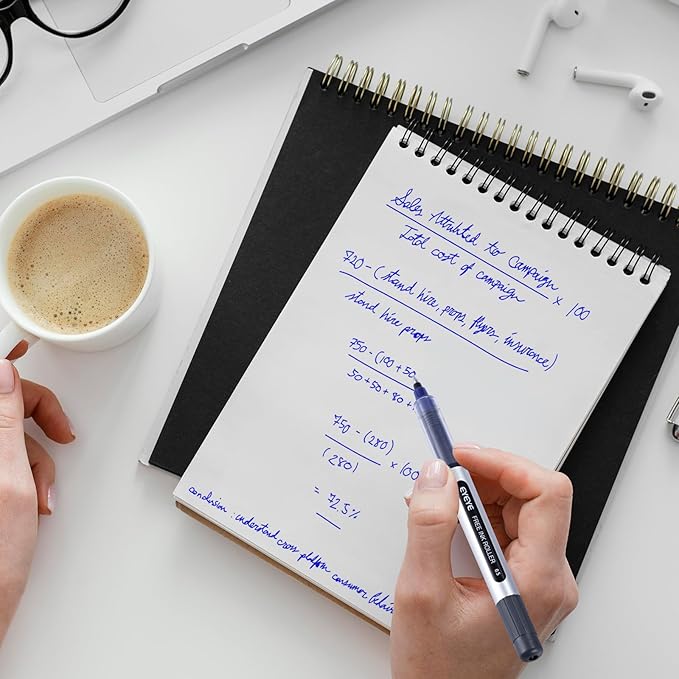 Sales Attributed to Campaign
Total cost of campaign
× 100
720 - (stand hire, props, flyers, insurance)
stand hire props
750 - (100 + 50
50 + 50 + 80 +
750 - (280)
(280)
× 100
= 72.5%
conclusion : understand cross platform consumer
EYEYE FREE INK ROLLER 0.5